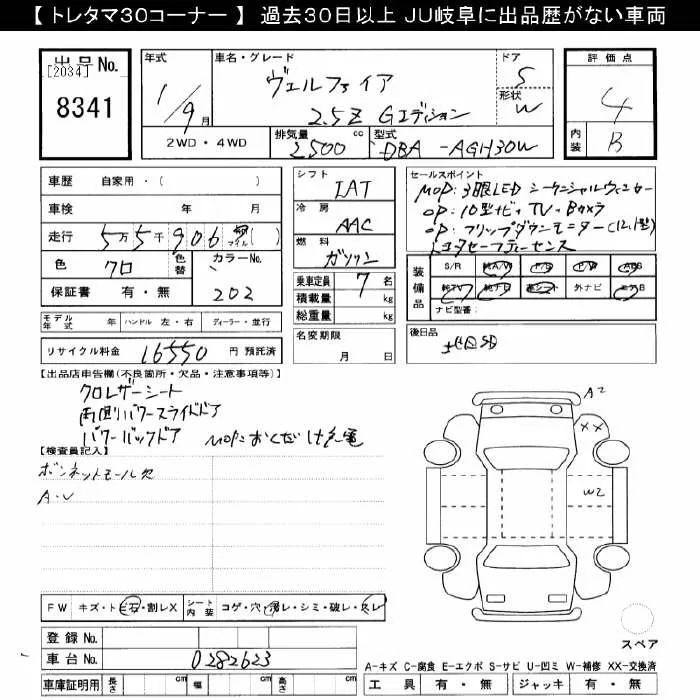 【 トレタマ30コーナー 】 過去30日以上 JU岐阜に出品歴がない車両
出品 No. [2034] 8341
年式 1/9月
車名・グレード ヴェルファイア 2.5Z Gエディション
ドア 5
形状 W
評価点 4
内装 B
2WD・4WD
排気量 2500 cc
型式 DBA -AGH30W
車歴 自家用・( )
車検 年 月
走行 5万5千906 マイル ( )
色 クロ
色替
カラーNo. 202
保証書 有・無
シフト IAT
冷房 AAC
燃料 ガソリン
乗車定員 7 名
積載量 kg
総重量 kg
セールスポイント
MOP:3眼LED シーケンシャルウィンカー
OP:10型ナビ・TV・Bカメラ
OP:フリップダウンモニター(12.1型)
トヨタセーフティーセンス
装備品 S/R 純A/W P/S P/W ABS
純TV 純ナビ 革シート 外ナビ エアB
ナビ型番:
モデル年式 年 ハンドル 左・右 ディーラー・並行
リサイクル料金 16550 円 預託済
名変期限 月 日
後日品
【出品店申告欄(不良箇所・欠品・注意事項等)】
クロレザーシート
両側パワースライドドア
パワーバックドア MOP:おくだけ充電
【検査員記入】
ボンネットモール欠
A・U
A2
XX
W2
FW キズ・トビ石・割レX
シート内装 コゲ・穴・スレ・シミ・破レ・
登録 No.
車台 No. 0282623
スペア
A-キズ C-腐食 E-エクボ S-サビ U-凹ミ W-補修 XX-交換済
車庫証明用 長さ cm 幅 cm 高さ cm
工具 有・無 ジャッキ 有・無